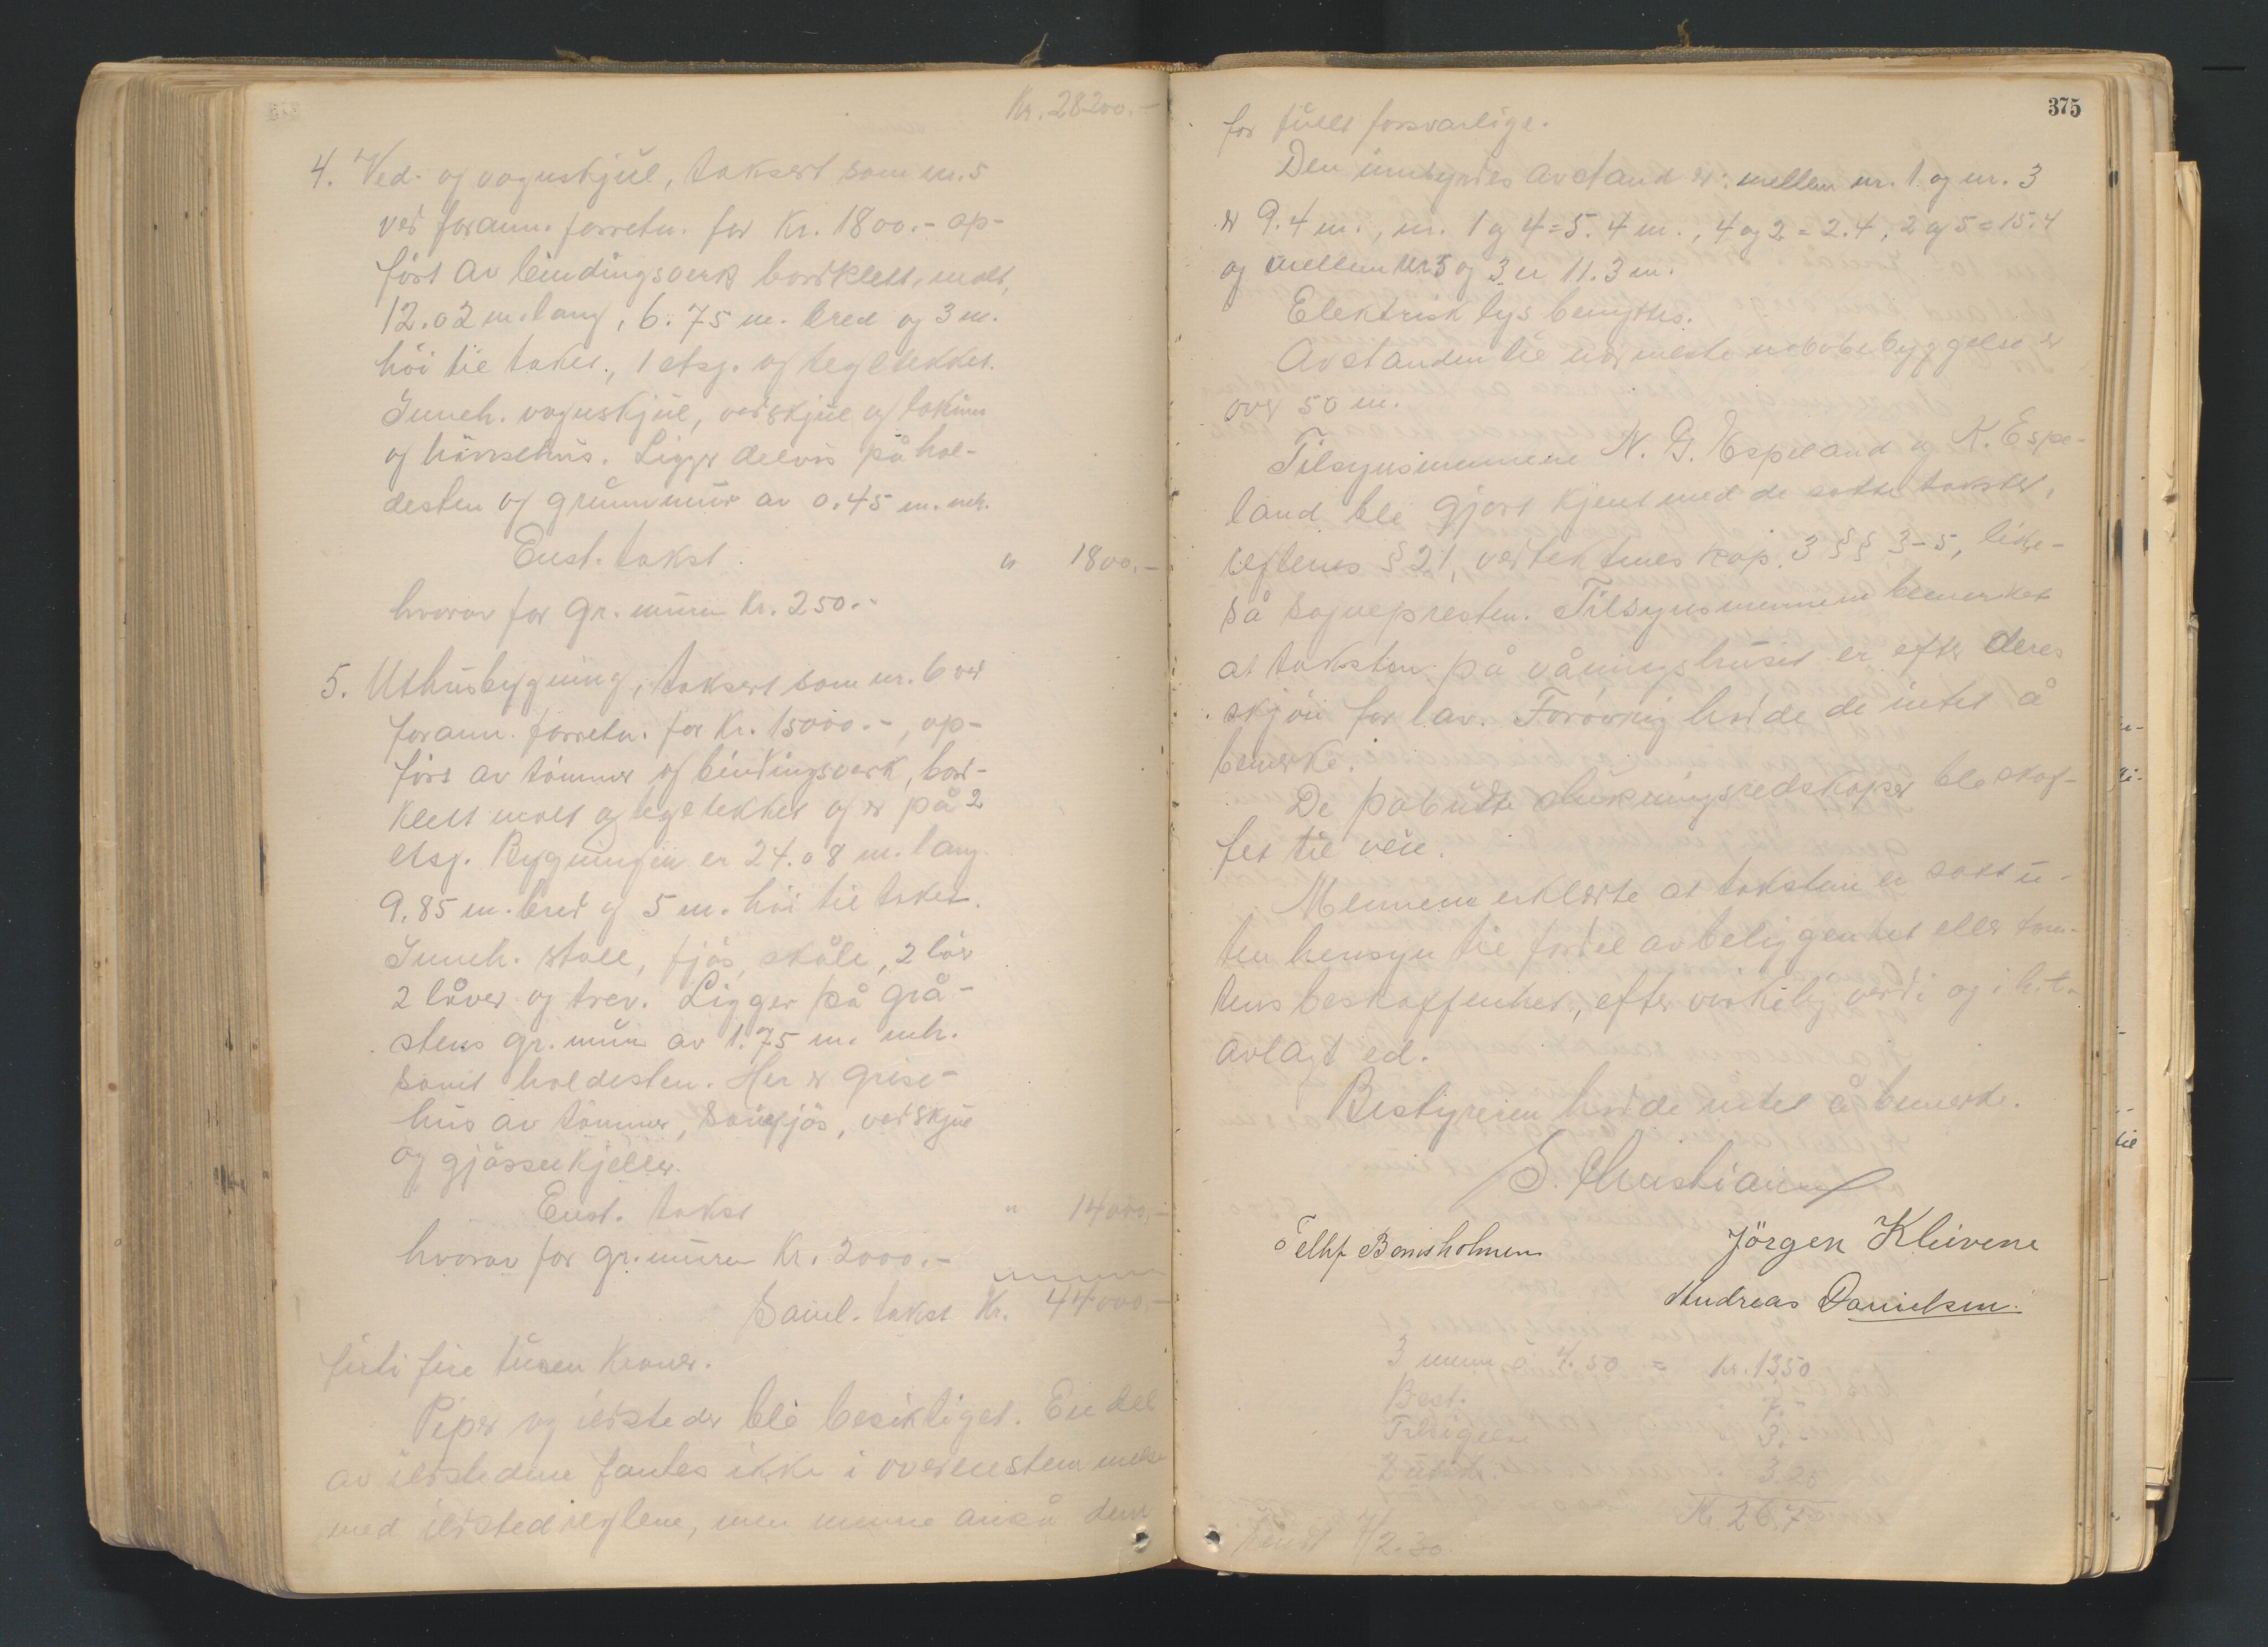 Kr. 28200.-
4. Ved- og vognskjul, taksert som nr. 5
ved forann. forretn. for Kr. 1800.- op-
ført av bindingsverk bordklett, malt,
12.02 m. lang, 6.75 m. bred og 3 m.
höi til taket, 1 etsg. og tegltekket.
Inneh. vognskjul, vedskjul og lokum
og hönsehus. Ligger delvis på hol-
desten og grunnmur av 0.45 m. mh.
Enst. takst " 1800.-
hvorav for gr. muren Kr. 250.-
5. Uthusbygning, taksert som nr. 6 ved
forann. forretn. for Kr. 15000.-, op-
fört av tömmer og bindingsverk, bord-
klett malt og tegltekket og er på 2
etsg. Bygningen er 24.08 m. lang
9.85 m. bred og 5 m. höi til taket.
Inneh. stall, fjös, skåle, 2 lör
2 låver og trev. Ligger på grå-
stens gr. mur av 1.75 m. mh.
samt holdesten. Her er grise-
hus av tömmer, sauefjös, vedskjul
og gjödselkjeller.
Enst. takst " 14000.-
hvorav for gr. muren Kr. 2000.-
Saml. takst Kr. 44000.-
firti fire tusen Kroner.
Piper og ildsteder blé besiktiget. En del
av ildstedene fantes ikke i overenstemmelse
med ildstedreglene, men menne anså dem
375
for fullt forsvarlige.
Den innbyrdes avstand er: mellem nr. 1 og nr. 3
er 9.4 m., nr. 1 og 4 = 5.4 m., 4 og 2 = 2.4, 2 og 5 = 15.4
og mellem nr 5 og 3 er 11.3 m.
Elektrisk lys benyttes.
Avstanden til nærmeste nabobebyggelse er
over 50 m.
Tilsynsmennene N. G. Espeland og K. Espe-
land ble gjort kjent med de satte takster,
§ 21, vedtektenes kap. 3 §§ 3-5, like-
så sognepresten. Tilsynsmennene bemerket
at taksten på våningshuset er efter deres
skjön for lav. Forövrig hadde de intet å
bemerke.
De påbudte slukningsredskaper ble skaf-
fet til veie.
Mennene erklærte at taksten er satt u-
ten hensyn til fordel av beliggenhet eller tom-
tens beskaffenhet, efter virkelig verdi og i hit.
avlagt ed.
Bestyreren hadde intet å bemerke.
S. Christiansen
Tellef Bomsholmen Jörgen Kleivene
Andreas Danielsen.
3 menn á 4.50 = Kr. 1350
Best. 7.-
Tilsigelse 3.-
3.25
Kr. 267
Sendt 7/2.30.